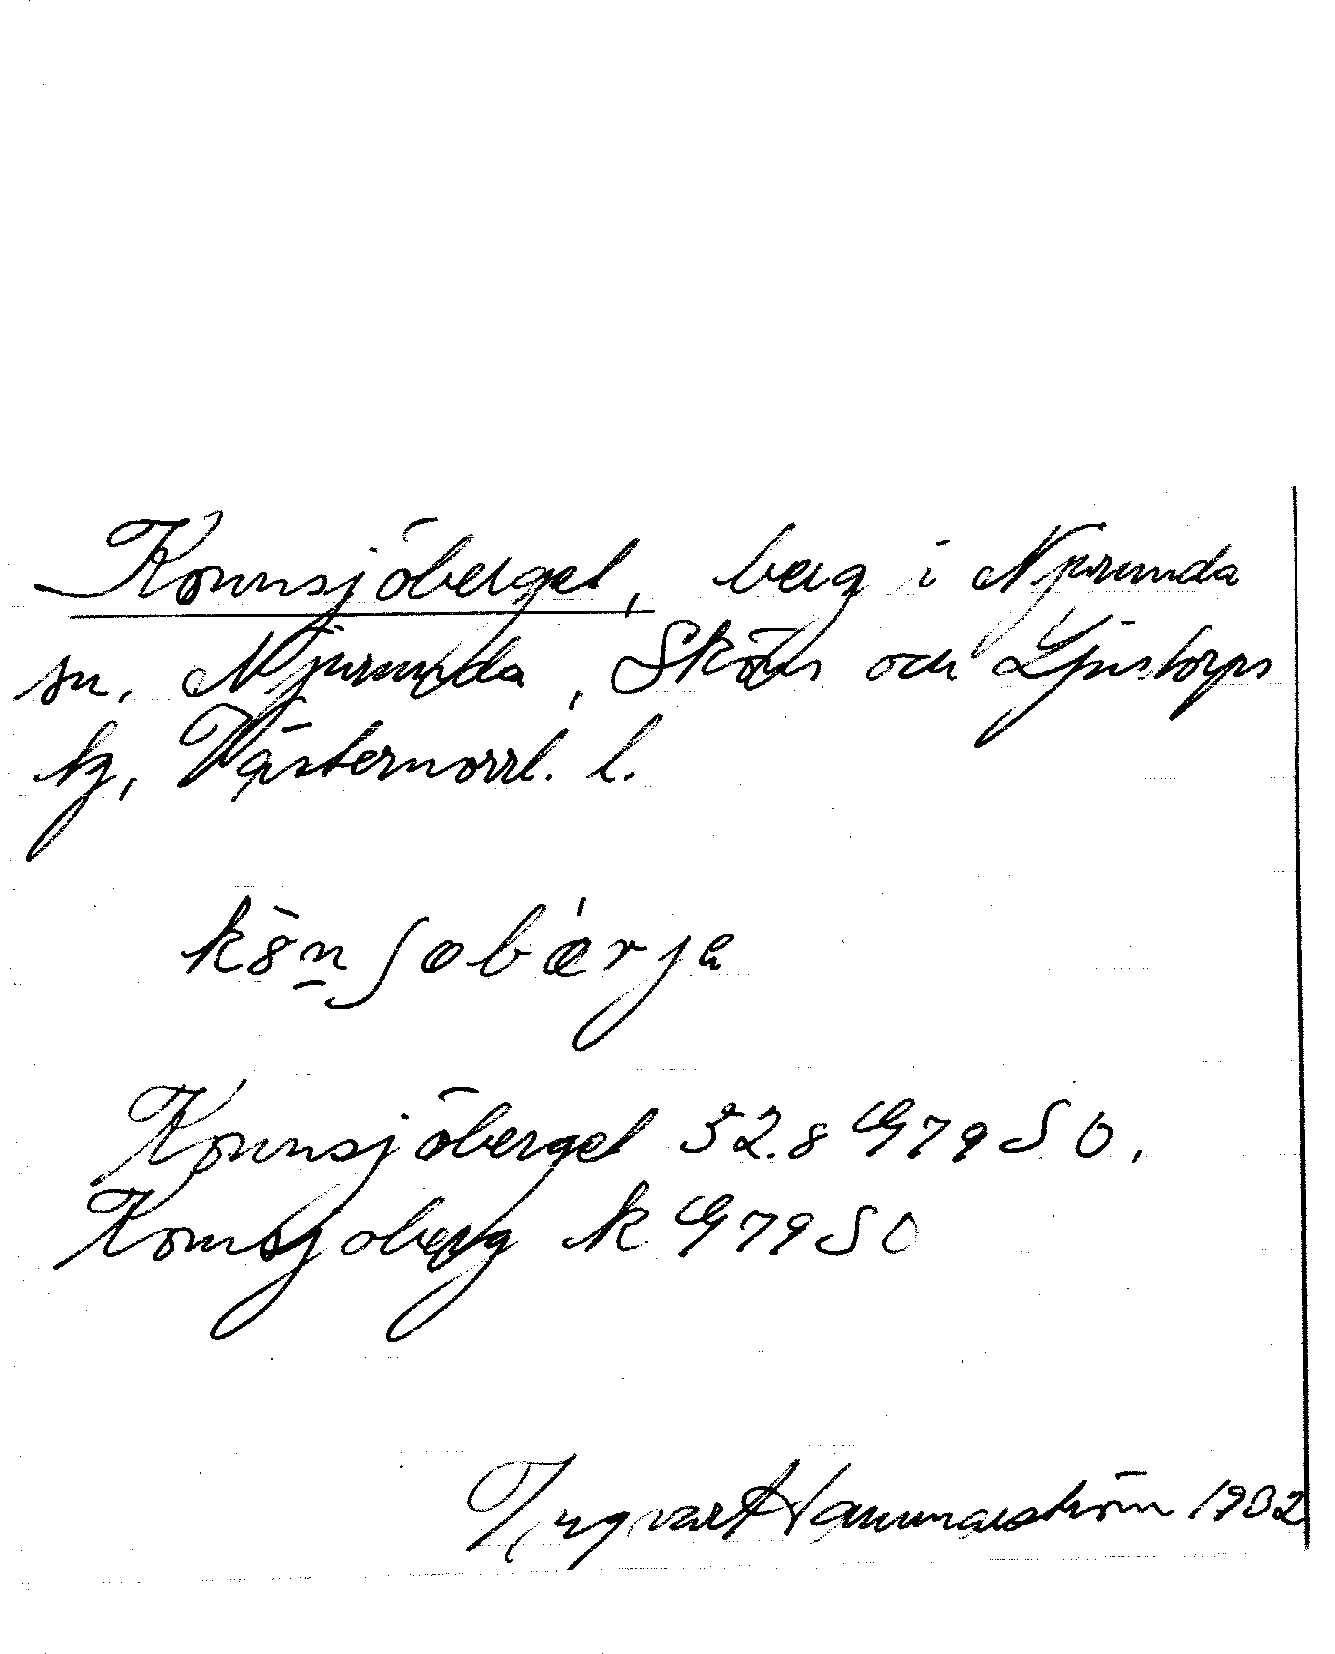 Konnsjöberget, berg i Njurunda
sn. Njurunda, Sköns och Ljustorps
tg, Västernorrl. l.
Konnsjöberget 32.8 G79SO.
Konnsjoberg k G79SO
Yngvar Hammarström 1932